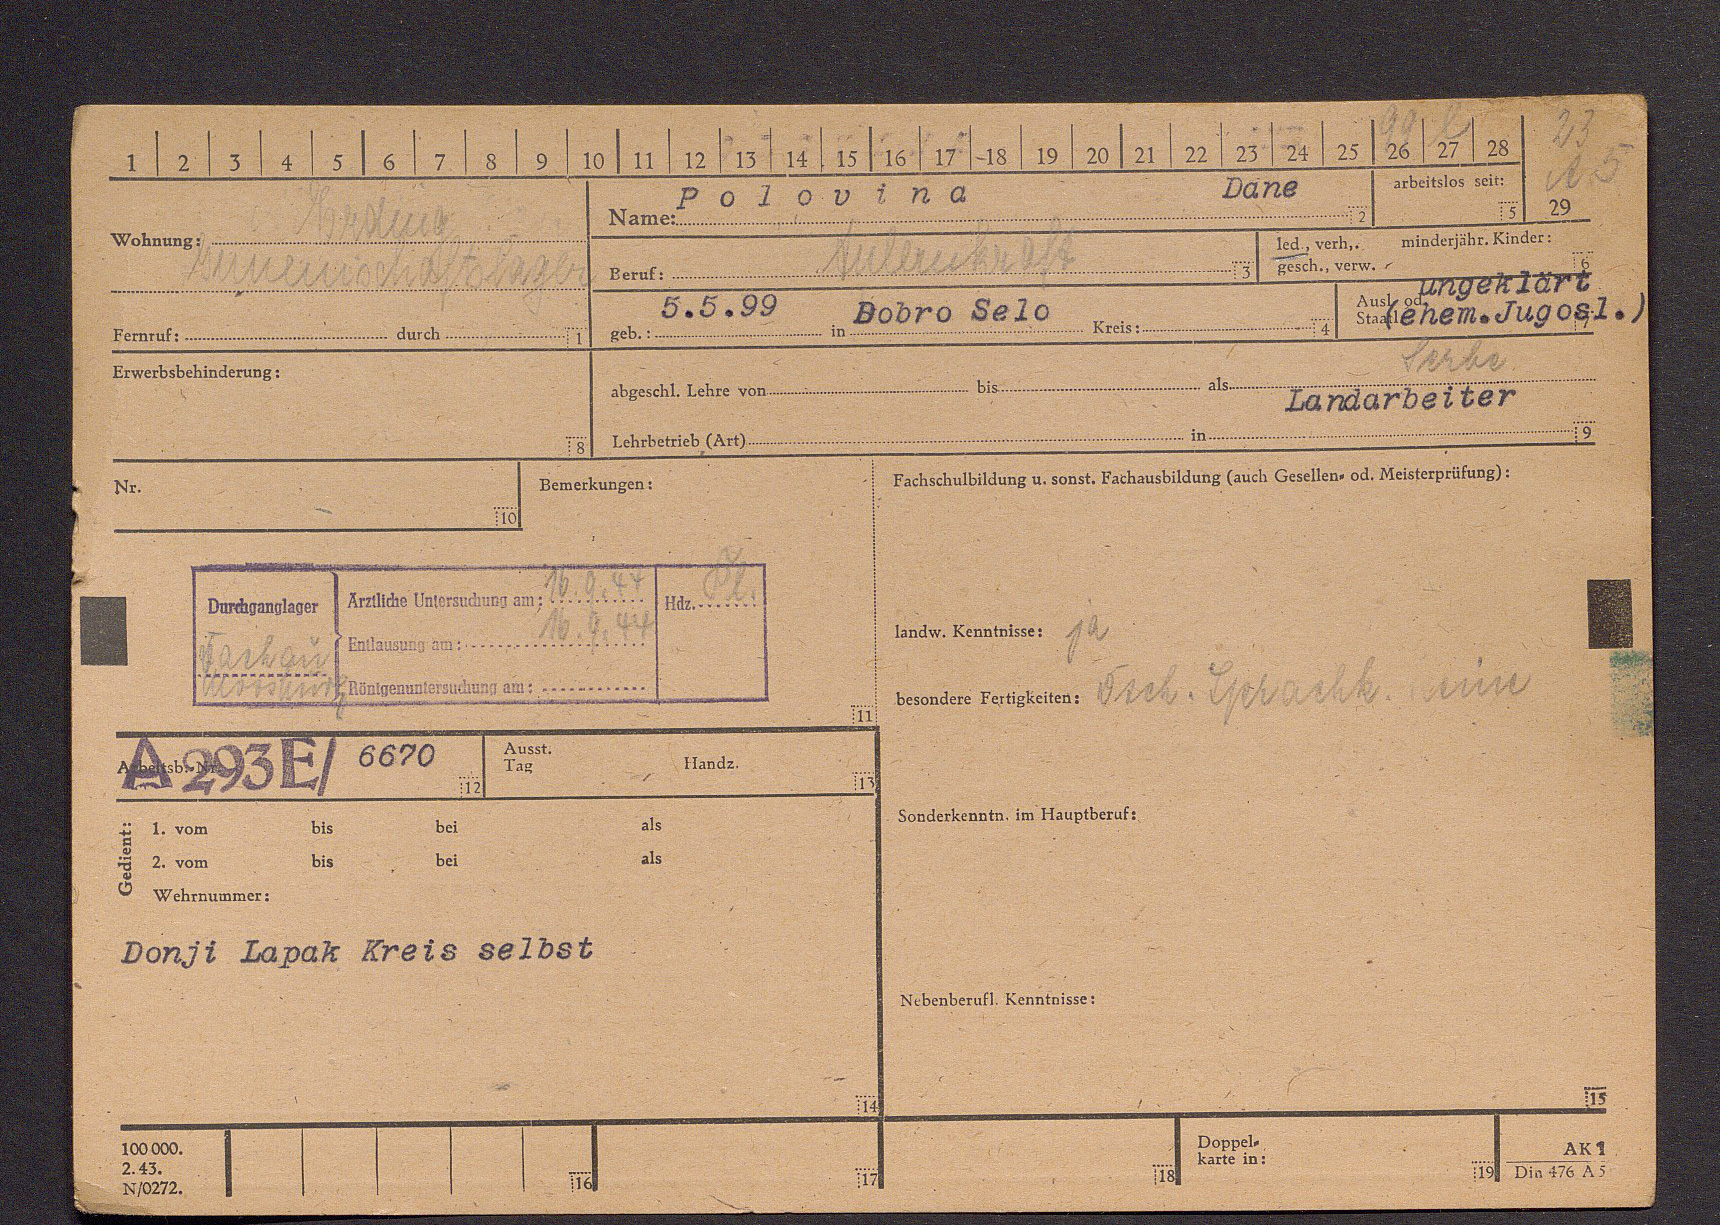 99
23
1 2 3 4 5 6 7 8 9 10 11 12 13 14 15 16 17 18 19 20 21 22 23 24 25 26 27 28
A 5
29
Wohnung: Erding
Gemeinschaftslager
Fernruf: durch 1
Name: Polovina Dane 2
arbeitslos seit: 5
Beruf: 3
led., verh., minderjähr. Kinder:
gesch., verw. 6
geb.: 5.5.99 in Dobro Selo Kreis: 4
Ausl. od. ungeklärt
Staatl. (ehem.Jugosl.) 7
Serbe
Erwerbsbehinderung:
8
abgeschl. Lehre von bis als
Landarbeiter
Lehrbetrieb (Art) in 9
Nr.
10
Bemerkungen:
Durchganglager
Dachau
Moosburg
Ärztliche Untersuchung am: 16.9.44
Entlausung am: 16.9.44
Röntgenuntersuchung am:
Hdz.
11
Fachschulbildung u. sonst. Fachausbildung (auch Gesellen- od. Meisterprüfung):
landw. Kenntnisse: ja
besondere Fertigkeiten: Dtsch. Sprachk. keine
Arbeitsb.-Nr. A 293 E/ 6670 12
Ausst.
Tag Handz. 13
Gedient:
1. vom bis bei als
2. vom bis bei als
Wehrnummer:
Donji Lapak Kreis selbst
14
Sonderkenntn. im Hauptberuf:
Nebenberufl. Kenntnisse:
15
100 000.
2.43.
N/0272.
16
17
18
Doppel-
karte in:
19
AK 1
Din 476 A 5